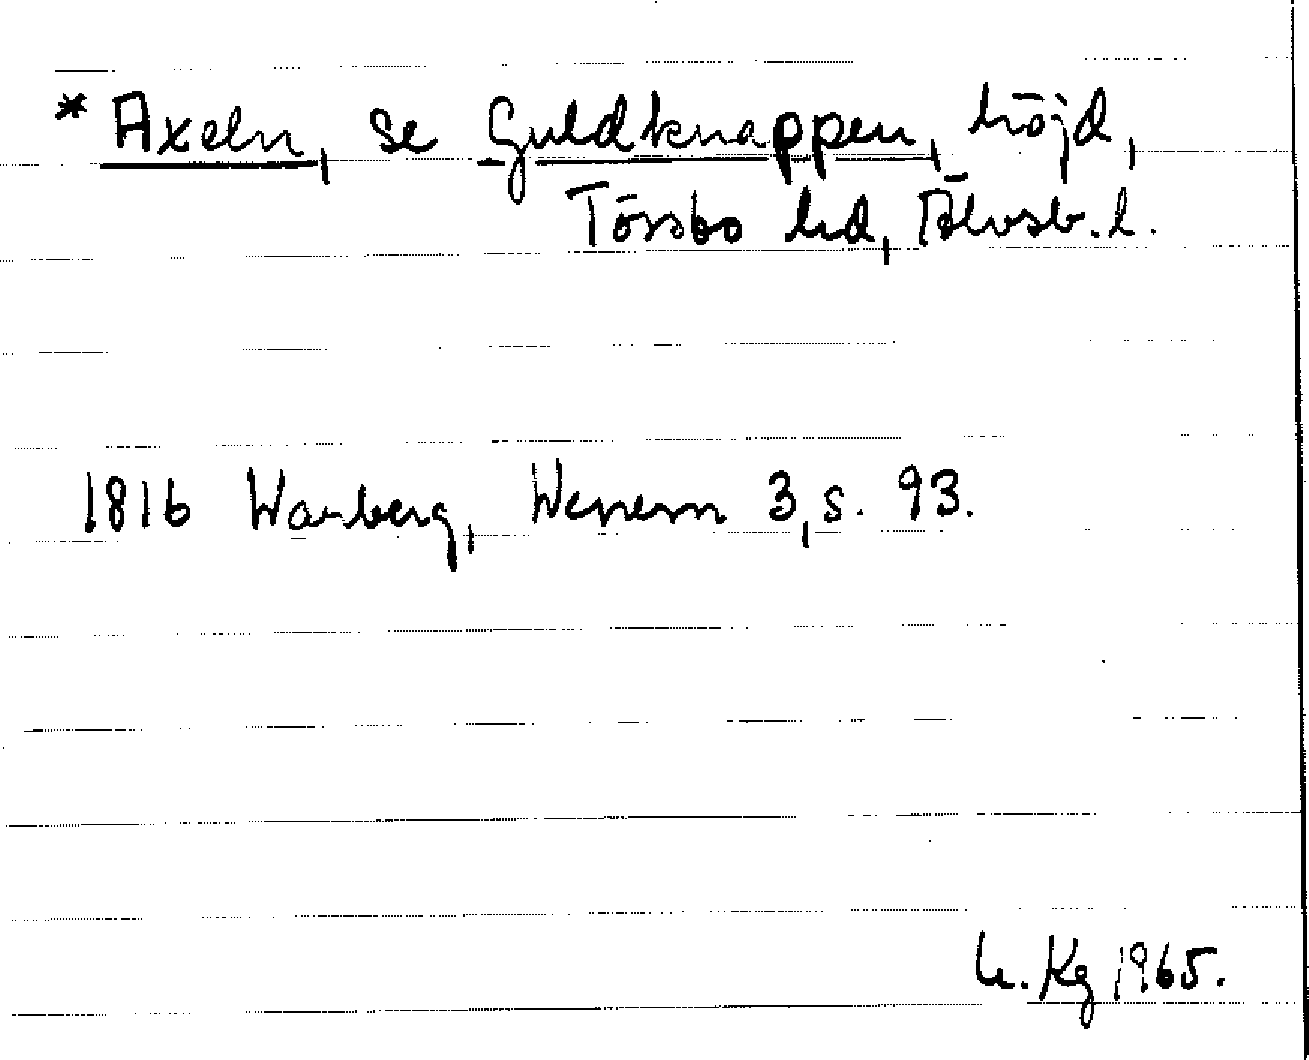 * Axeln, se Guldknappen, höjd,
Tössbo hd, Älvsb. l.
1816 Warberg, Wenern 3, s. 93.
Kg 1965.